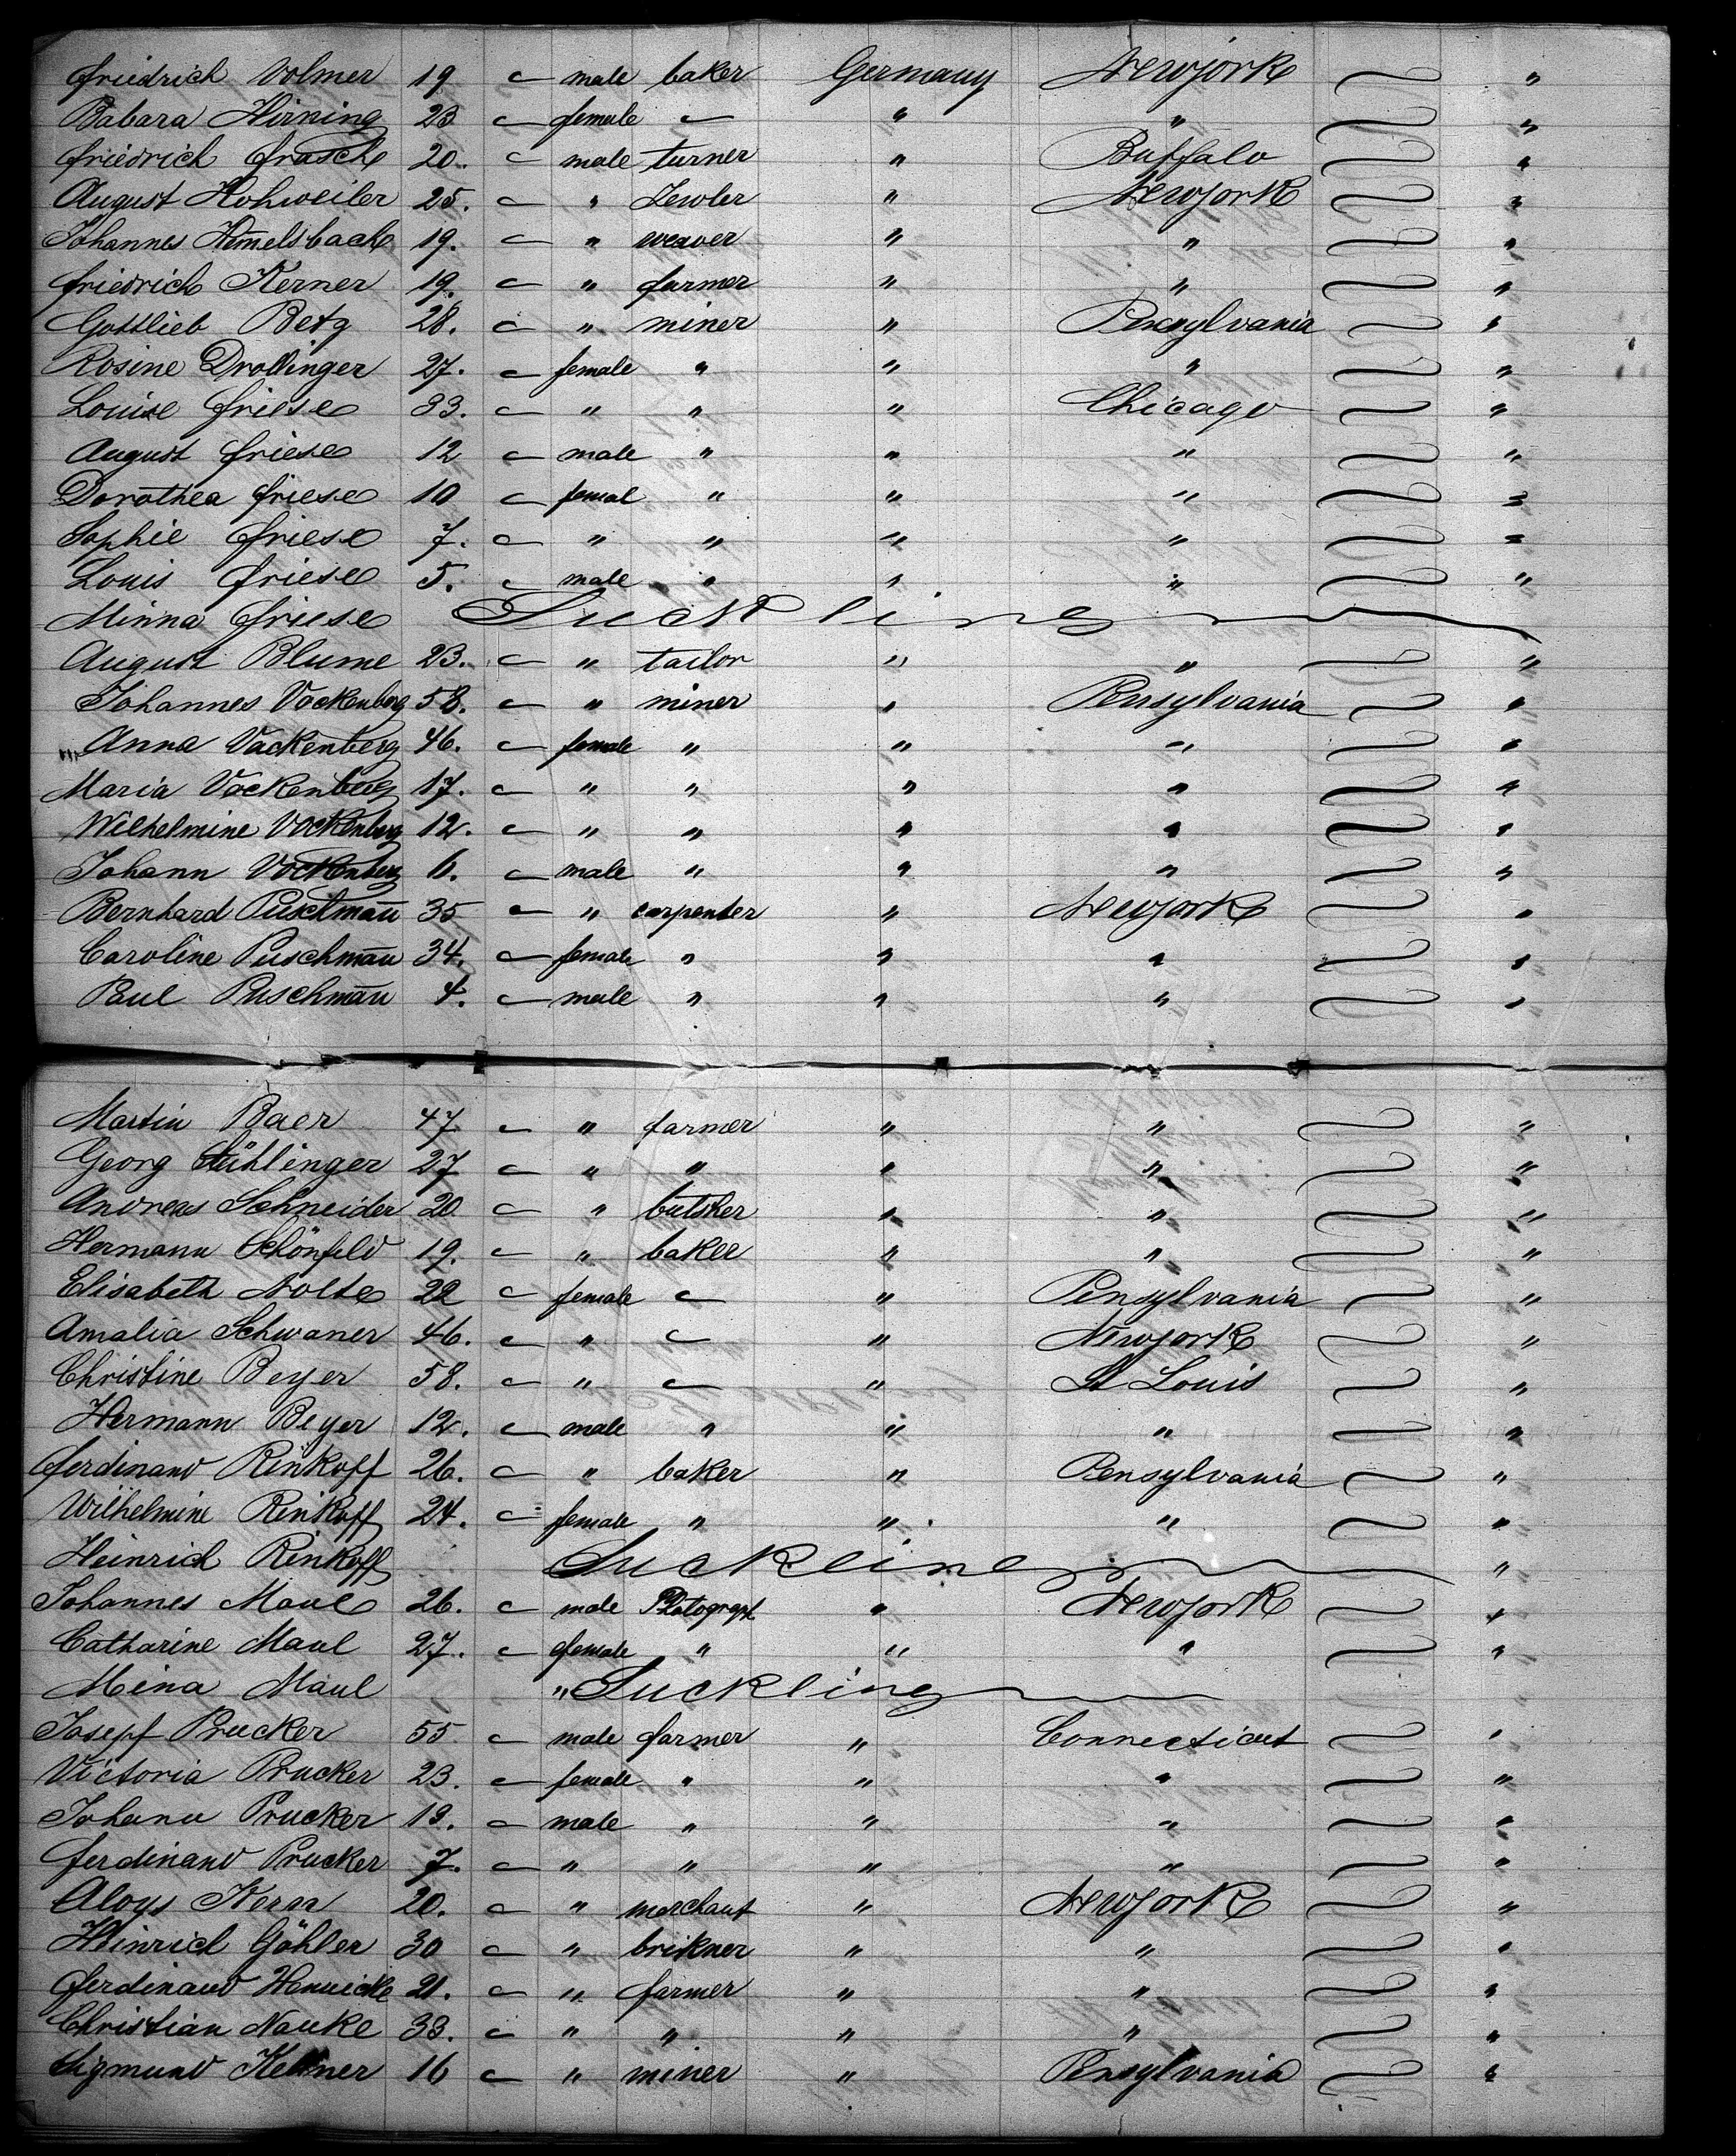 Friedrich Volmer 19 — male baker Germany Newjork "
Babara Hirning 23 — female — " " "
Friedrich Frasch 20. — male turner " Buffalo "
August Hohweiler 25. — " Jewler " Newjork "
Johannes Himelsbach 19. — " weaver " " "
Friedrich Kerner 19. — " farmer " " "
Gottlieb Betz 28. — " miner " Pensylvania "
Rosine Drollinger 27. — female " " " "
Louise Friese 33. — " " " Chicago "
August Friese 12 — male " " " "
Dorothea Friese 10 — femal " " " "
Sophie Friese 7. — " " " " "
Louis Friese 5. — male " " " "
Minna Friese Suckling
August Blume 23. — " tailor " " "
Johannes Vockenberg 58. — " miner " Pensylvania "
Anna Vockenberg 46. — female " " " "
Maria Vockenberg 17. — " " " " "
Wilhelmine Vockenberg 12. — " " " " "
Johann Vockenberg 6. — male " " " "
Bernhard Puschman̄ 35 — " carpenter " Newjork "
Caroline Puschman̄ 34. — female " " " "
Paul Puschman̄ 4. — male " " " "
Martin Baer 47 — " farmer " " "
Georg 27 — " " " " "
Andreas Schneider 20 — " butsher " " "
Hermann Schönfeld 19. — " baker " " "
Elisabeth Nolte 22 — female — " Pensylvania "
Amalia Schwaner 46. — " — " Newjork "
Christine Beyer 58. — " — " St Louis "
Hermann Beyer 12. — male " " " "
Ferdinand Rinkoff 26. — " baker " Pensylvania "
Wilhelmine Rinkoff 24. — female " " " "
Heinrich Rinkoff Suckling "
Johannes Maul 26. — male Photograph " Newjork "
Catharine Maul 27. — female " " " "
Mina Maul " Suckling
Josepf Prucker 55 — male farmer " Connecticut "
Victoria Prucker 23. — female " " " "
Johann Prucker 19. — male " " " "
Ferdinand Prucker 7. — " " " " "
Aloys Kern 20. — " merchant " Newjork "
Heinrich Göhler 30 — " brikner " " "
Ferdinand Hennicke 21. — " farmer " " "
Christian Nauke 33. — " " " " "
Sigmund Kellner 16 — " miner " Pensylvania "